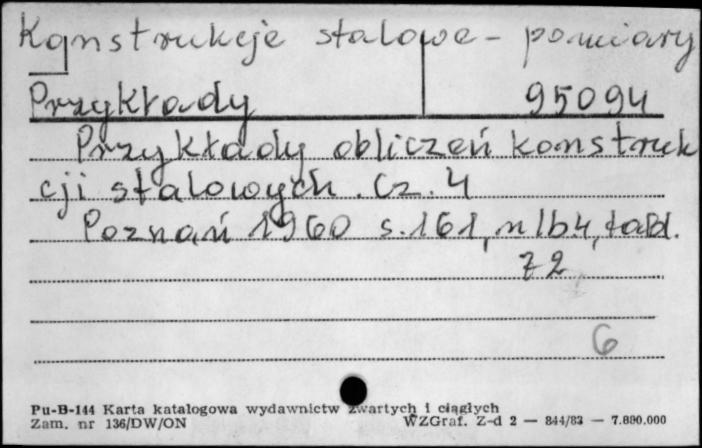 Konstrukcje stalowe - pomiary
Przykłady 95094
Przykłady obliczeń konstruk
cji stalowych. Cz. 4
Poznań 1960 s. 161, nlb 4, tabl.
72
6
Pu-B-144 Karta katalogowa wydawnictw zwartych i ciągłych
Zam. nr 136/DW/ON WZGraf. Z-d 2 — 844/83 — 7.800.000